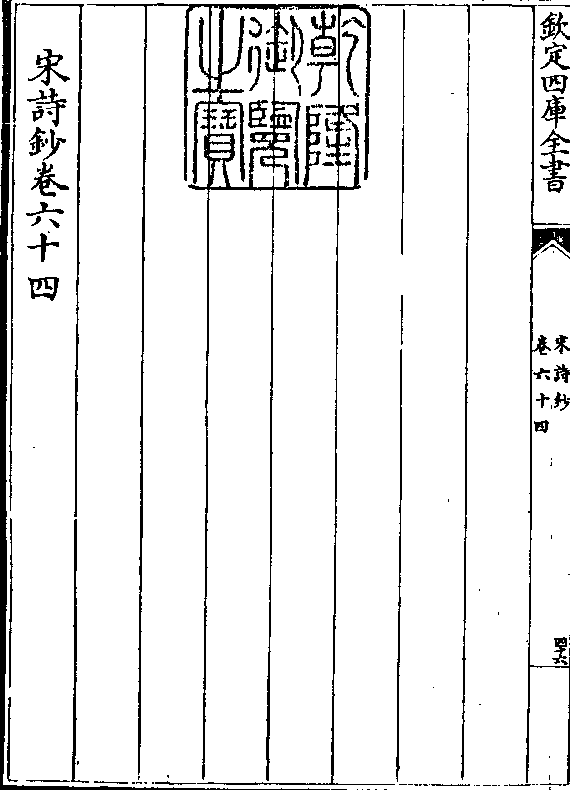 欽定四庫全書
宋詩鈔
卷六十四
四十六
乾隆
御覽
之寶
宋詩鈔卷六十四